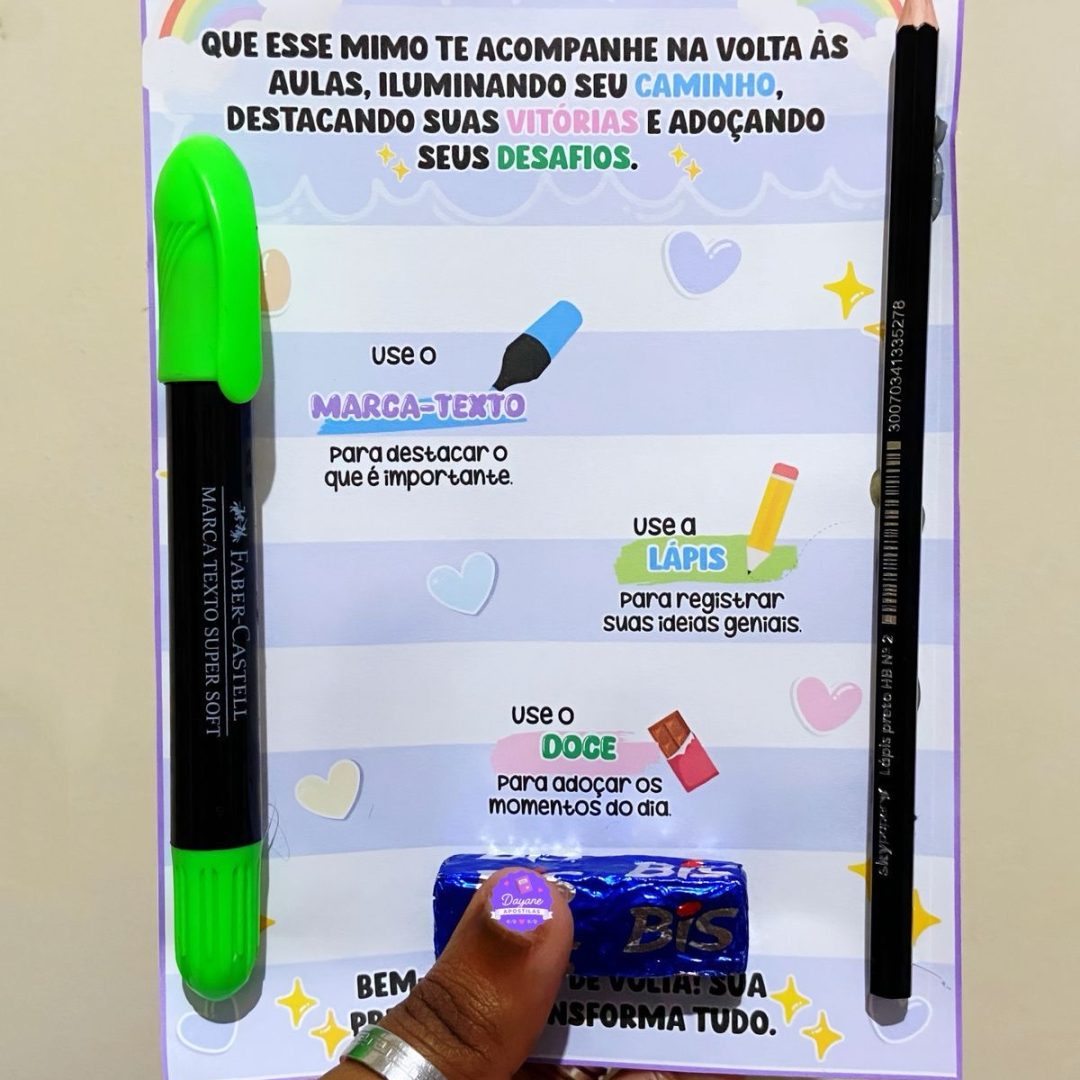 QUE ESSE MIMO TE ACOMPANHE NA VOLTA ÀS
AULAS, ILUMINANDO SEU CAMINHO,
DESTACANDO SUAS VITÓRIAS E ADOÇANDO
SEUS DESAFIOS.
USE O
MARCA-TEXTO
Para destacar o
que é importante.
FABER-CASTELL
MARCA TEXTO SUPER SOFT
USE A
LÁPIS
Para registrar
suas ideias geniais.
30070341335278
Lápis preto HB Nº 2
USE O
DOCE
Para adoçar os
momentos do dia.
BIS
BIS
Dayane
APOSTILAS
BEM- DE VOLTA! SUA
TUDO.